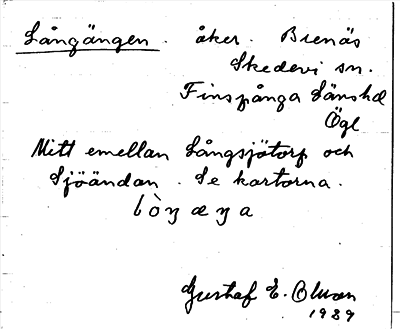 Långängen. åker. Brenäs
Skedevi sn.
Finspånga Länshd
Ögl
Mitt emellan Långsjötorp och
Sjöändan. Se kartorna.
Gustaf E. Olsson
1989